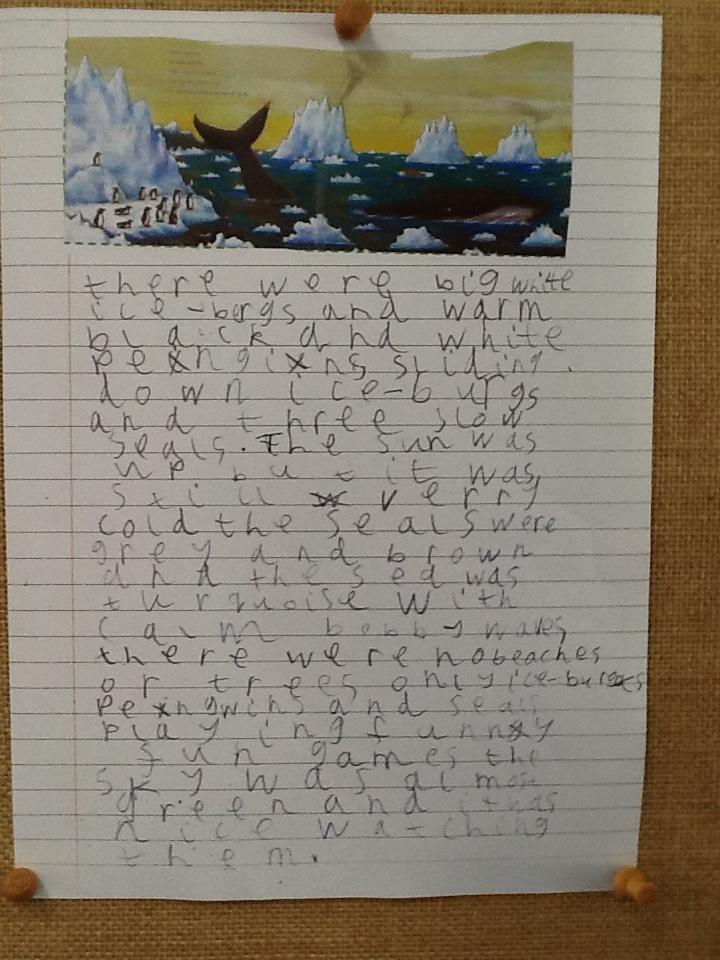 there were big white
ice-bergs and warm
black and white
pengins sliding.
down ice-burgs
and three slow
seals. The sun was
up but it was
still verry
cold the seals were
grey and brown
and the sed was
turquoise with
calm bobby waves
there were no beaches
or trees only ice-burges
pengwins and seals
playing funny
fun games the
sky was almost
green and it was
nice watching
them.